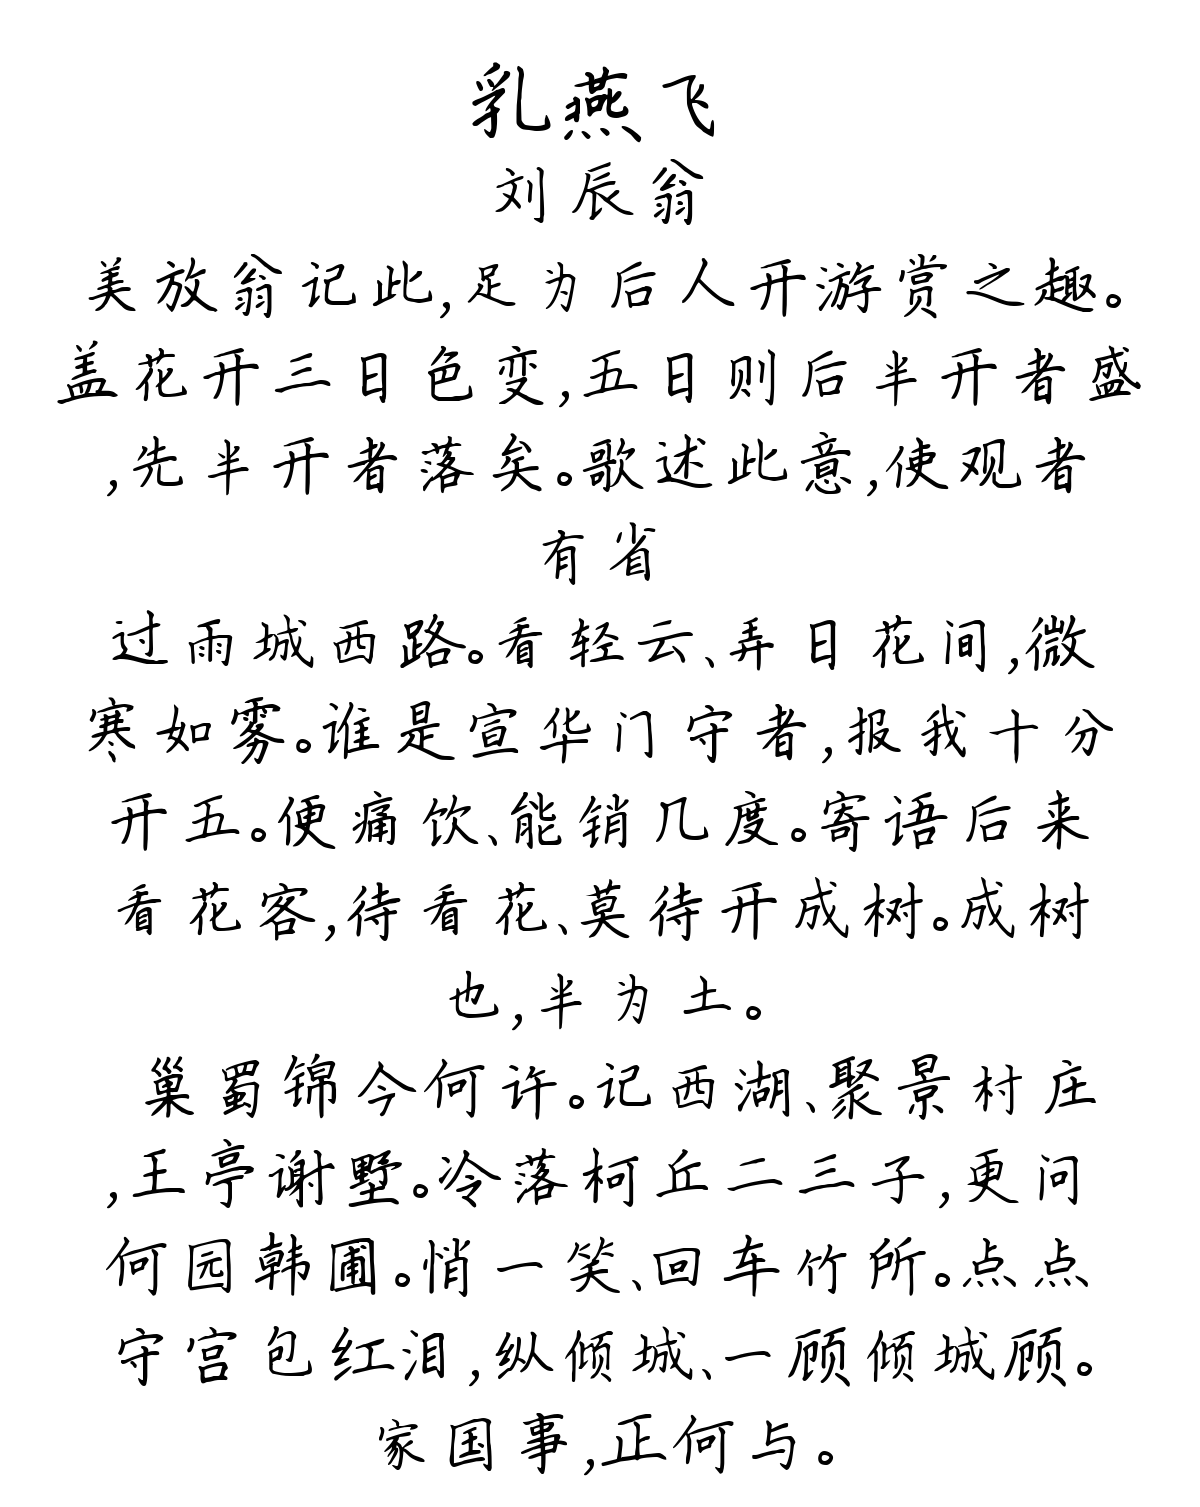 乳燕飞
刘辰翁
美放翁记此,足为后人开游赏之趣。
盖花开三日色变,五日则后半开者盛
,先半开者落矣。歌述此意,使观者
有省
过雨城西路。看轻云、弄日花间,微
寒如雾。谁是宣华门守者,报我十分
开五。便痛饮、能销几度。寄语后来
看花客,待看花、莫待开成树。成树
也,半为土。
巢蜀锦今何许。记西湖、聚景村庄
,王亭谢墅。冷落柯丘二三子,更问
何园韩圃。悄一笑、回车竹所。点点
守宫包红泪,纵倾城、一顾倾城顾。
家国事,正何与。